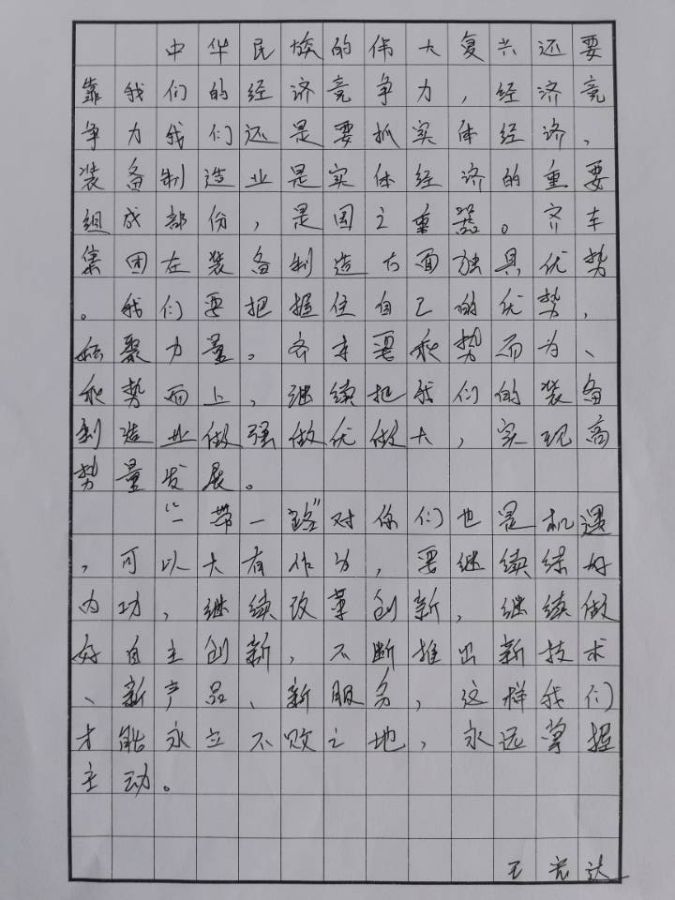 中华民族的伟大复兴还要
靠我们的经济竞争力，经济竞
争力我们还是要抓实体经济，
装备制造业是实体经济的重要
组成部份，是国之重器。齐车
集团在装备制造方面独具优势
。我们要把握住自己的优势，
凝聚力量。齐车要乘势而为、
乘势而上，继续把我们的装备
制造业做强做优做大，实现高
势量发展。
“一带一路”对你们也是机遇
，可以大有作为，要继续练好
内功，继续改革创新，继续做
好自主创新，不断推出新技术
、新产品、新服务，这样我们
才能永立不败之地，永远掌握
主动。
王宏达